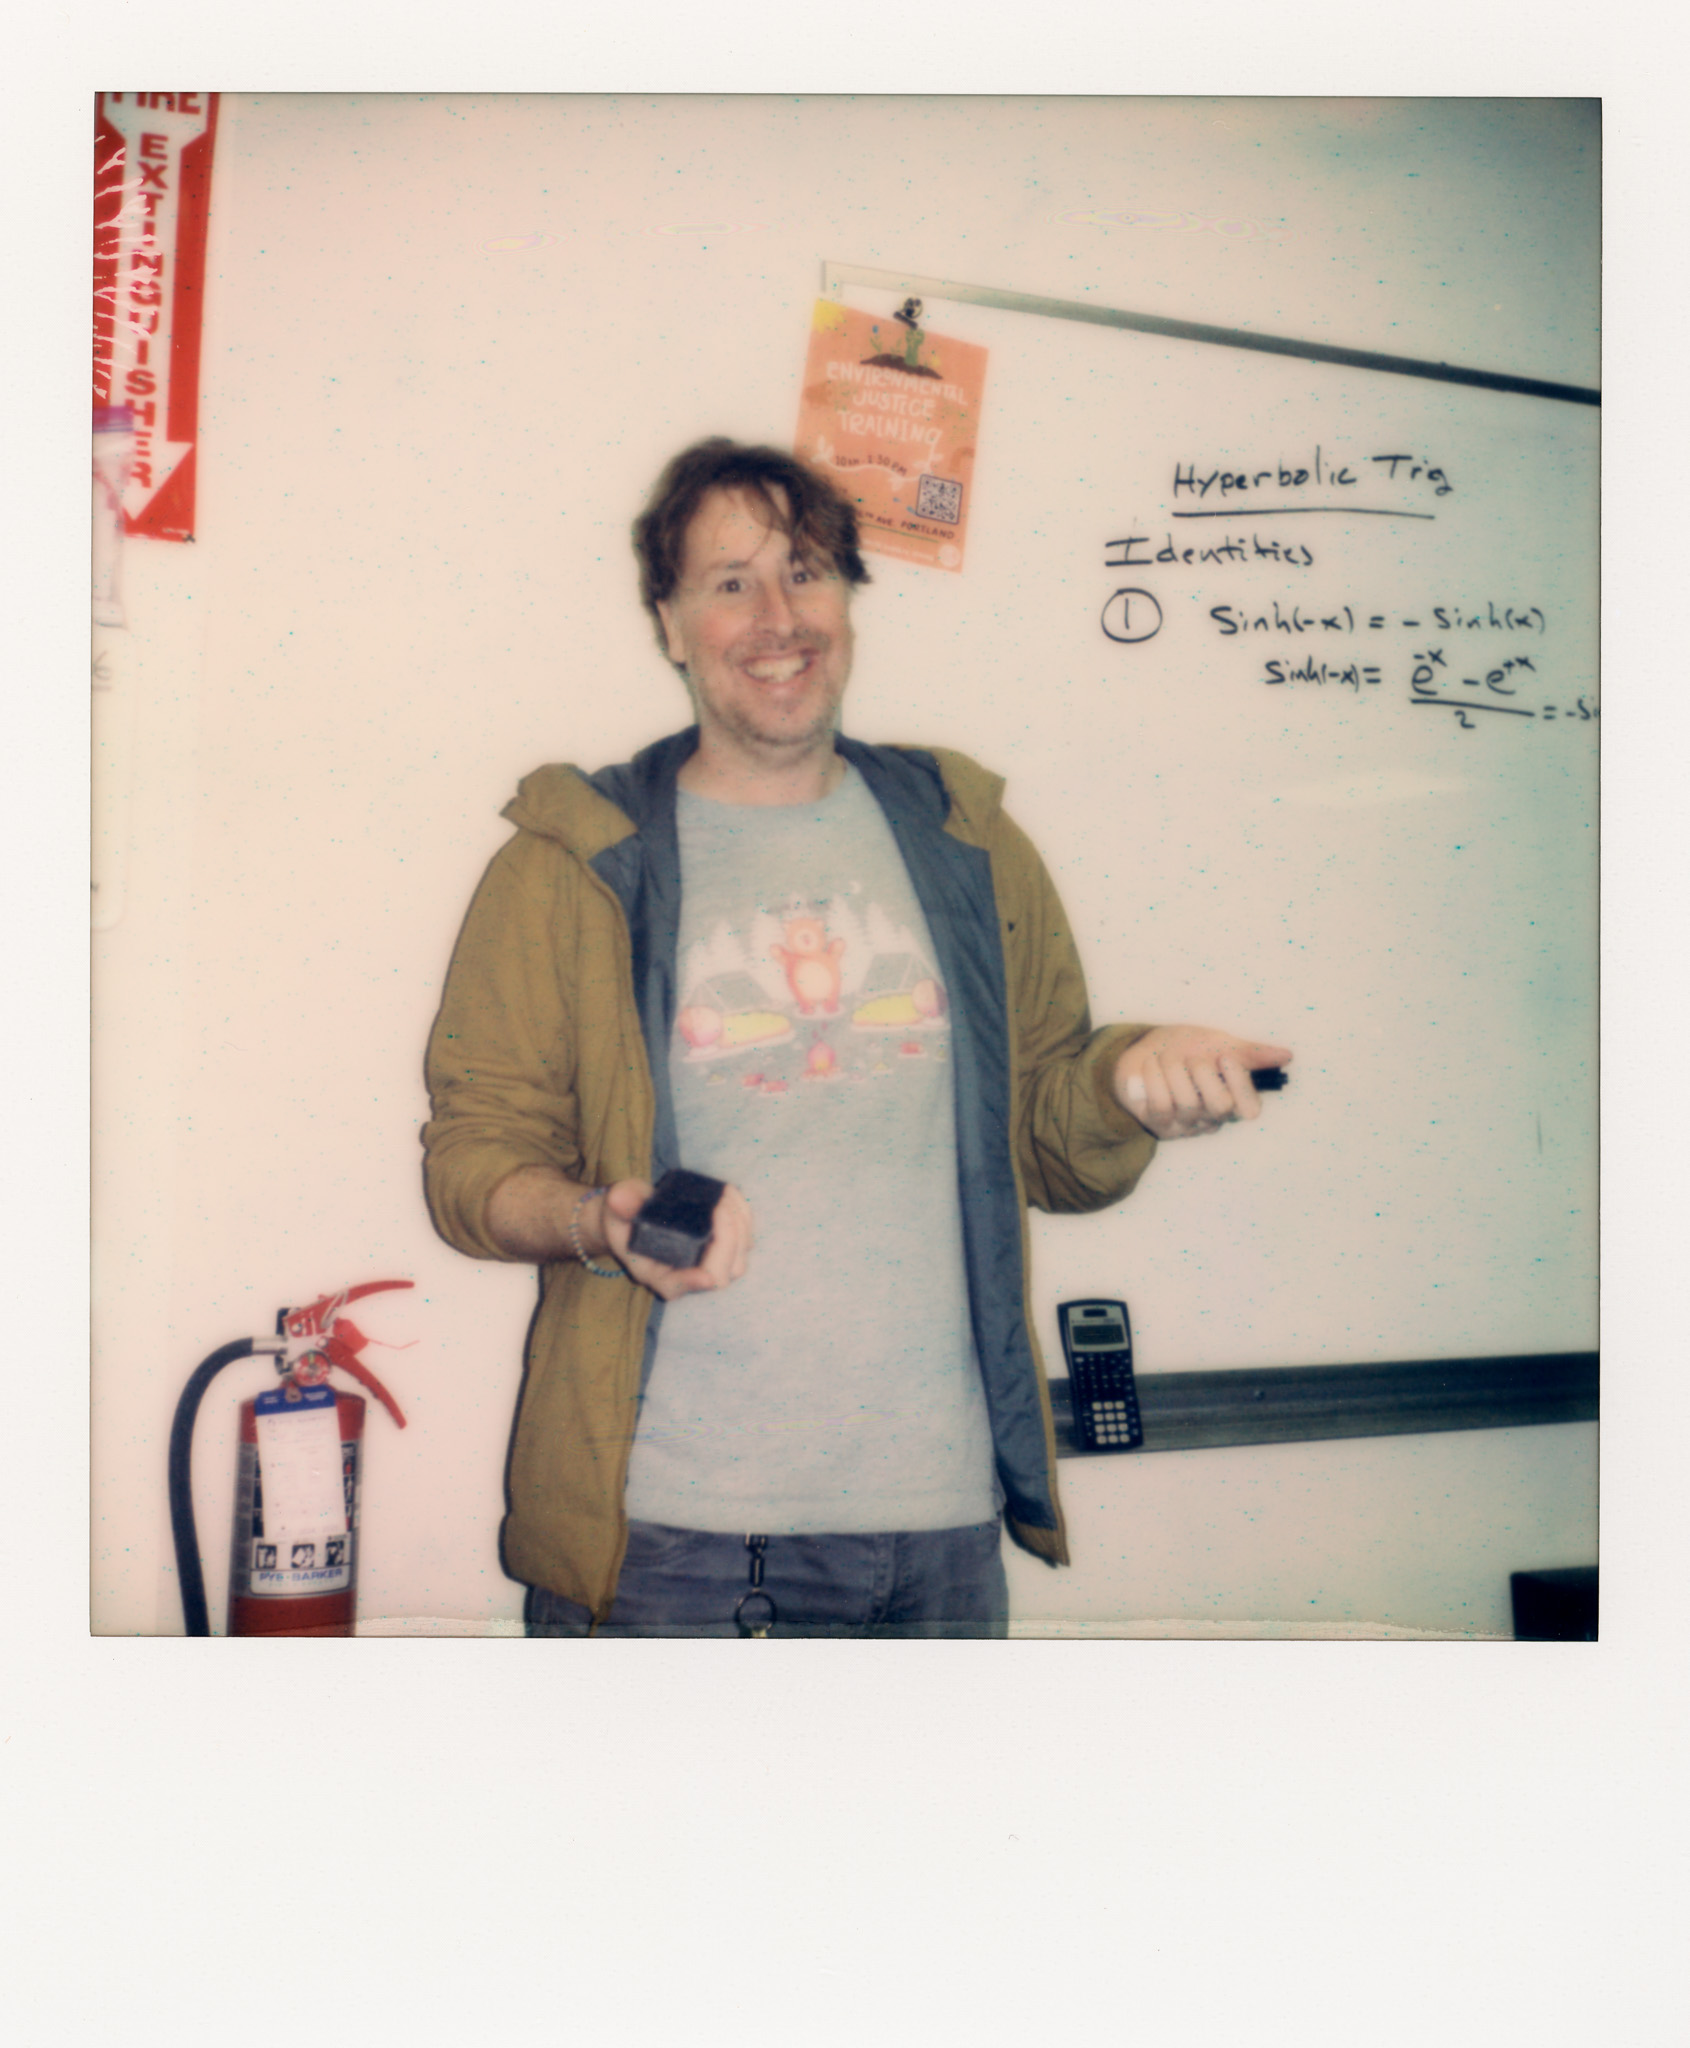 FIRE
EXTINGUISHER
ENVIRONMENTAL
JUSTICE
TRAINING
1:30 PM
AVE. PORTLAND
Hyperbolic Trig
Identities
① Sinh(-x) = - Sinh(x)
Sinh(-x) = e^-x - e^+x
2
= -Si
PYE-BARKER